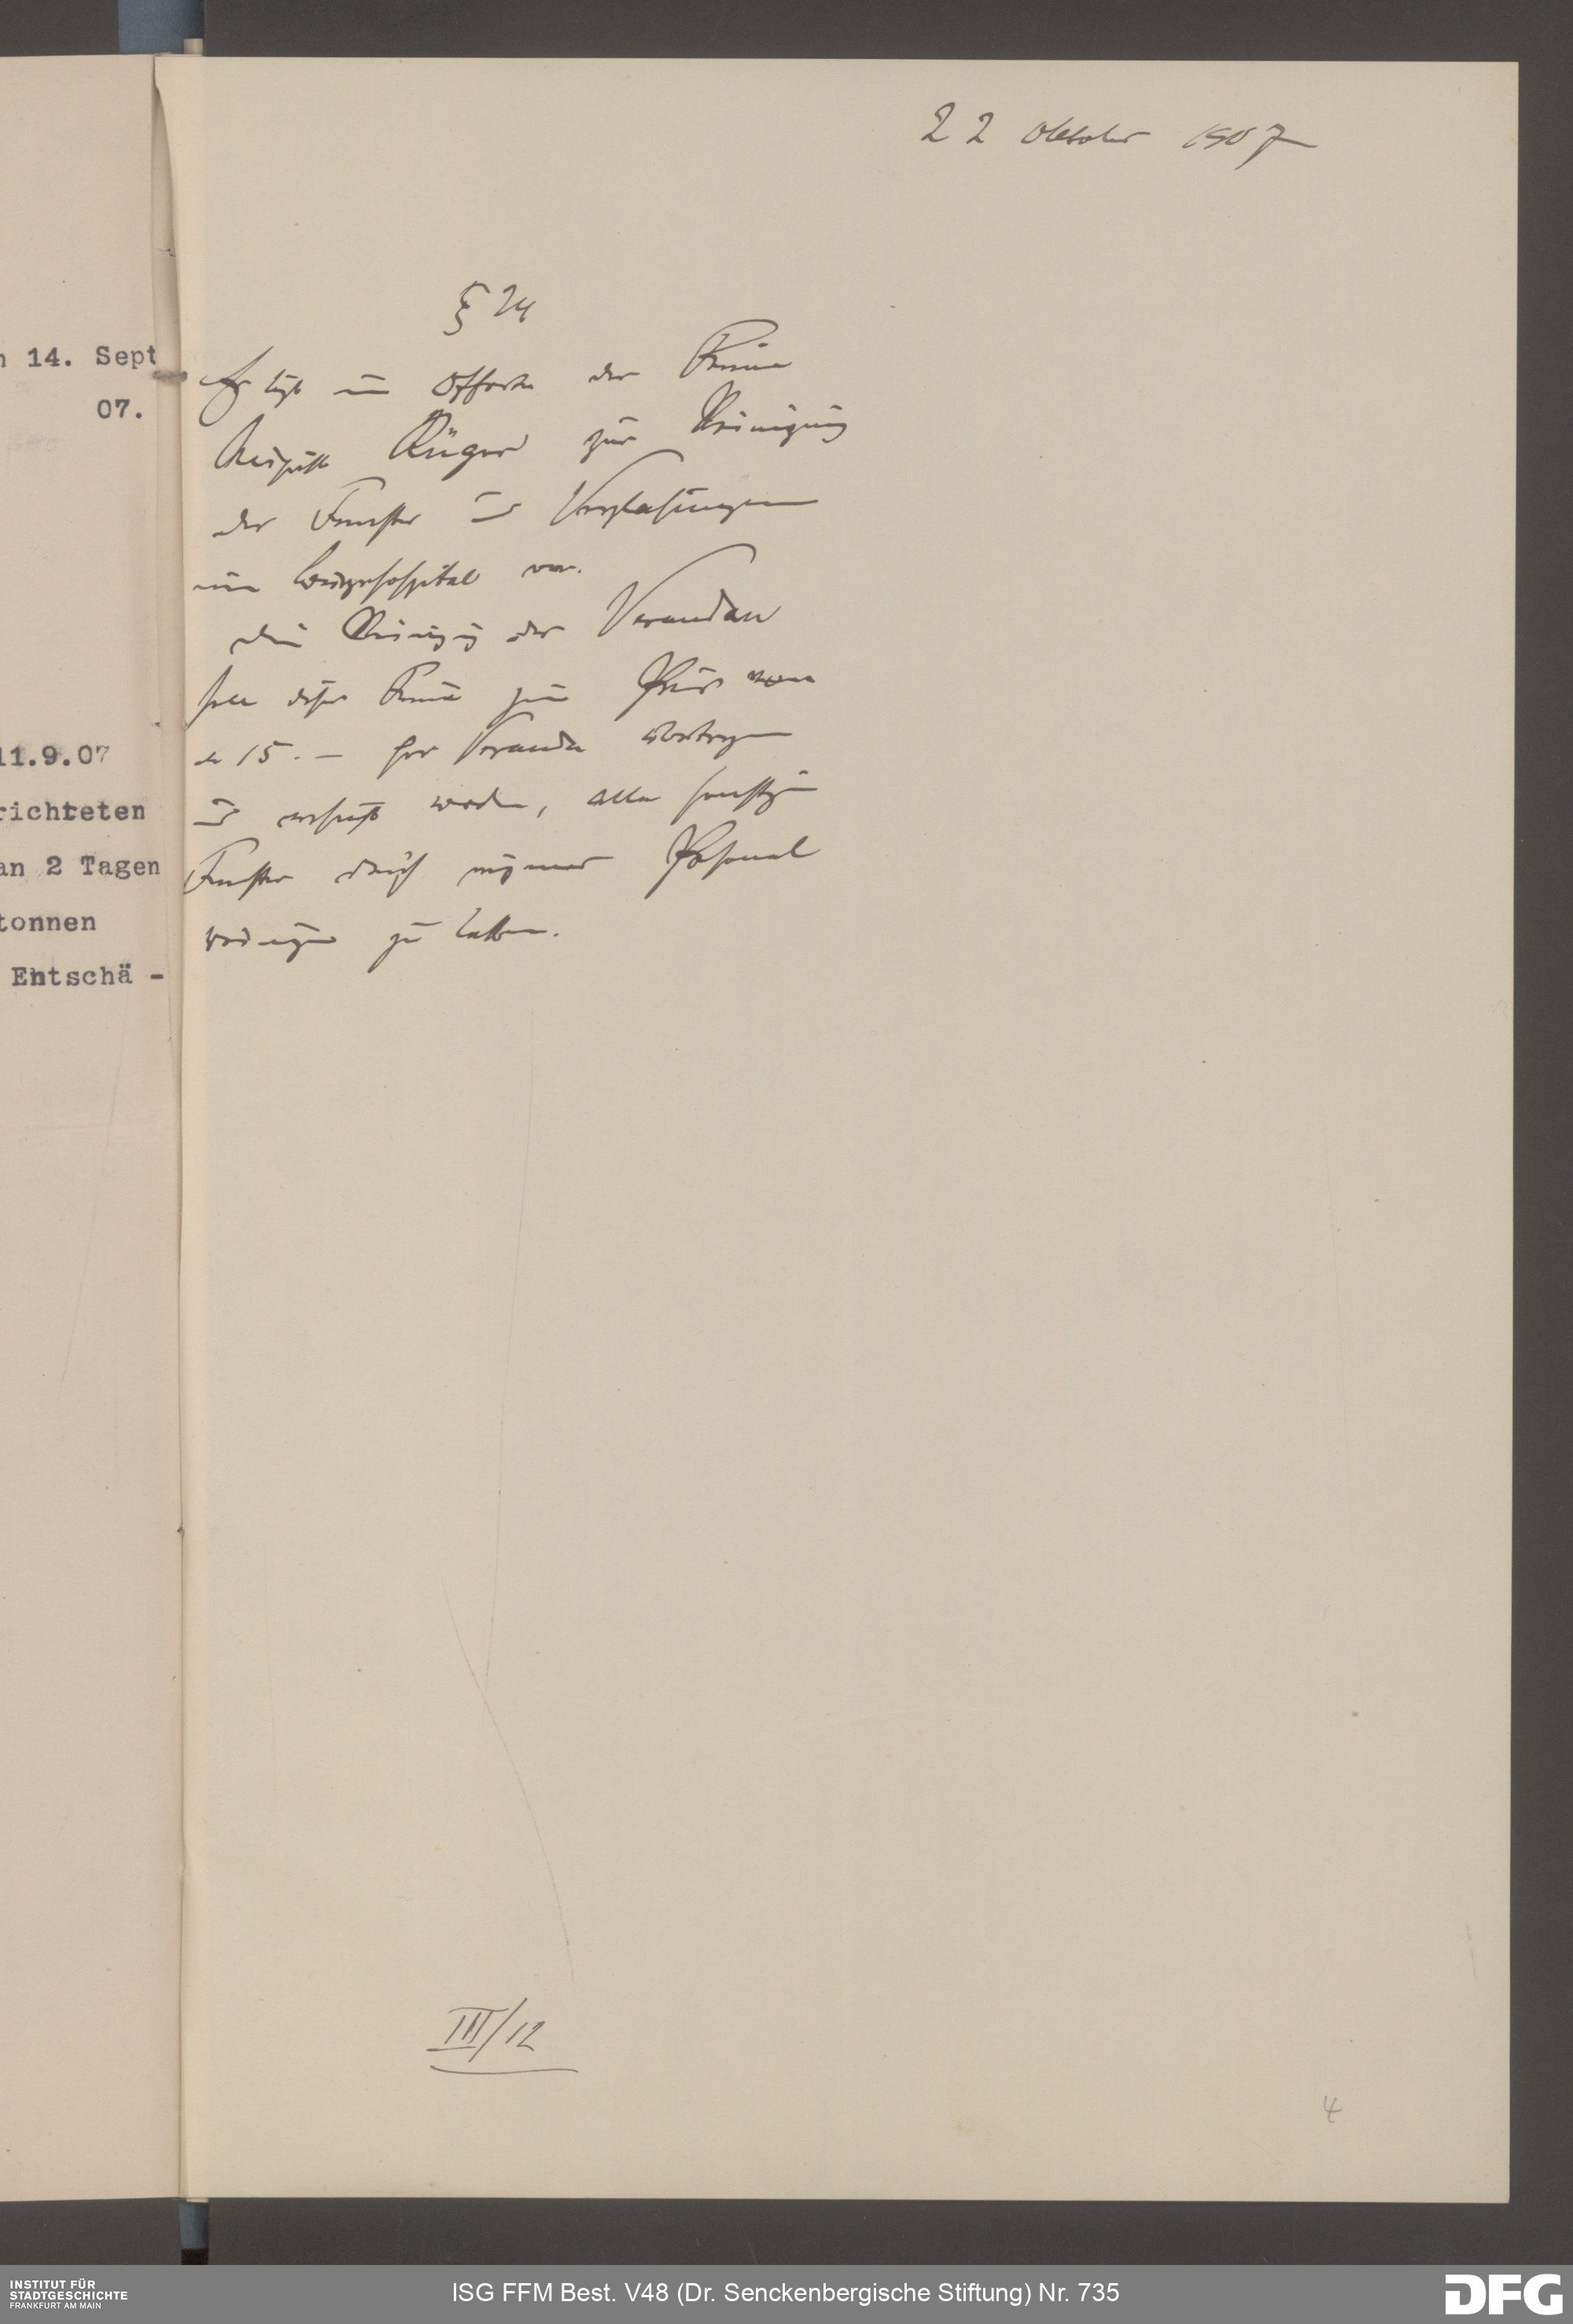 22 Oktober 1907
§ 24
Es liegt eine Offerte der Firma
August Rüger zur Reinigung
der Fenster und Verglasungen
im Bürgerhospital vor.
Die Reinigung der Veranden
soll dieser Firma zum Preis von
M 15.– per Veranda übertragen
und versucht werden, alle sonstigen
Fenster durch eigenes Personal
reinigen zu lassen.
III/12
4
n 14. Sept
07.
11.9.07
richteten
an 2 Tagen
tonnen
Entschä -
INSTITUT FÜR
STADTGESCHICHTE
FRANKFURT AM MAIN
ISG FFM Best. V48 (Dr. Senckenbergische Stiftung) Nr. 735
DFG